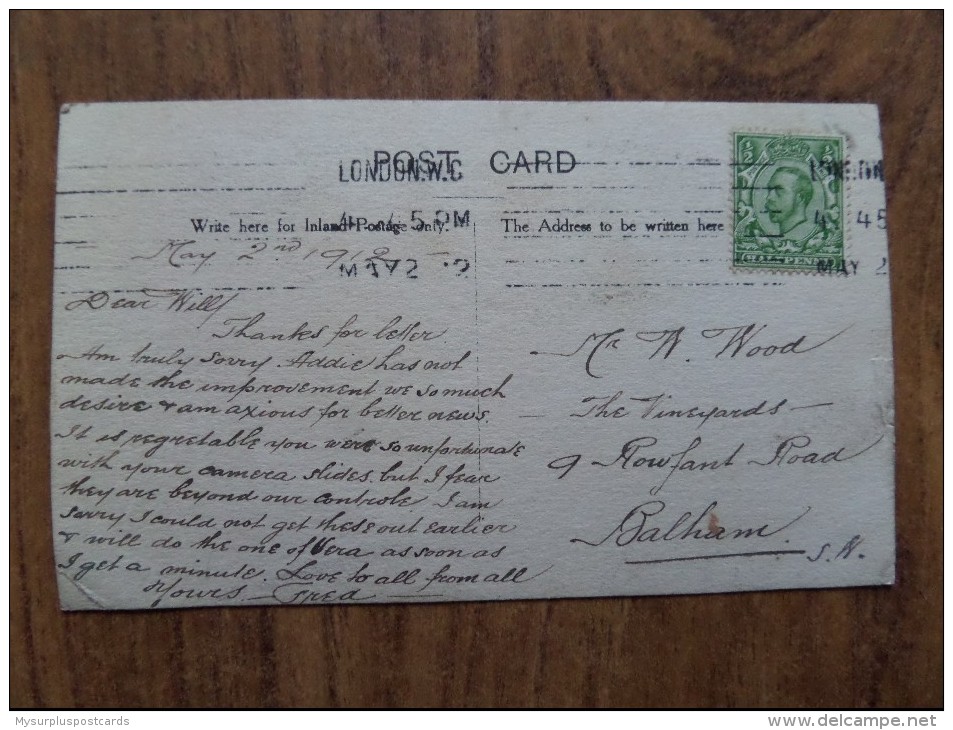 POST CARD
LONDON.W.C
4. 45 PM
MAY 2 12
Write here for Inland Postage only.
The Address to be written here
½ ½
HALFPENNY
LONDON
4. 45
MAY 2
May 2nd 1912
Dear Will
Thanks for letter.
Am truly sorry Addie has not
made the improvement we so much
desire & am axious for better news.
It is regretable you were so unfortunate
with your camera slides but I fear
they are beyond our controle. I am
sorry I could not get these out earlier
& will do the one of Vera as soon as
I get a minute. Love to all from all
Yours — Fred —
Mr W. Wood
— The Vineyards —
9 Rowfant Road
Balham.
S.W.
Mysurpluspostcards
http://www.delcampe.net